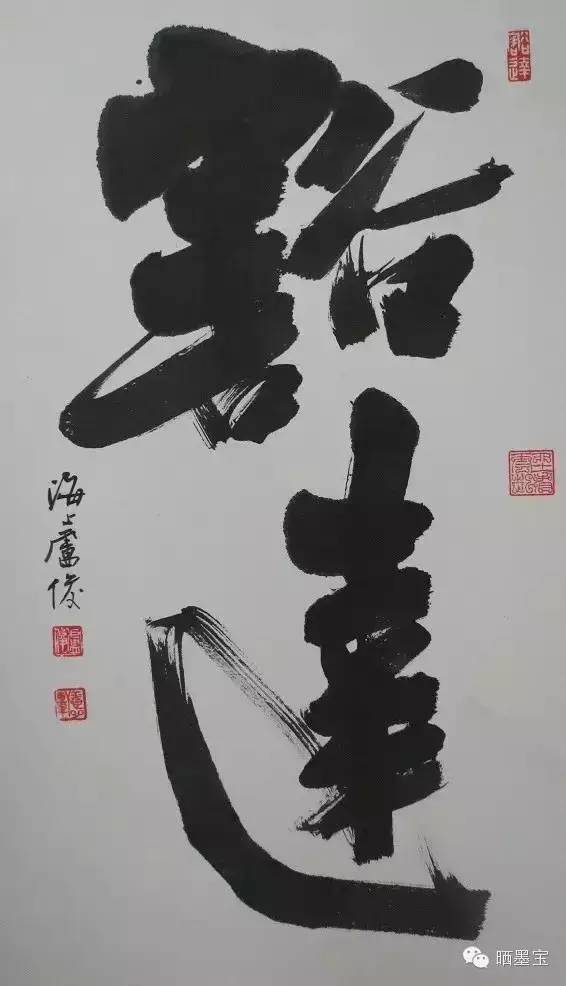 豁達
海上盧俊
豁達
晒墨宝